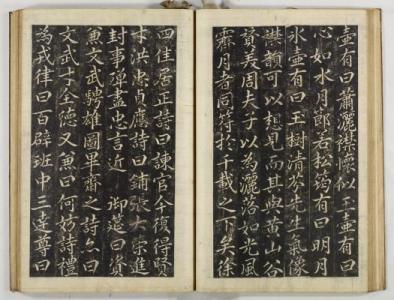 壺有曰蕭灑襟懷似玉壺有曰
心如水月郎若松筠有曰明月
氷壺有曰玉樹清芬先生氣像
襟韻可以想見而其與黃山谷
賛美周夫子以為灑落如光風
霽月者同符於千載之下矣徐
四佳居正詩曰諫官今復得賢
才洪忠貞應詩曰鋪張大策進
封事彈盡忠言近 御筵曰資
兼文武騁雄圖畢齋之詩亦曰
文武才全德又兼曰何妨詩禮
為戎律曰百辟班中三達尊曰